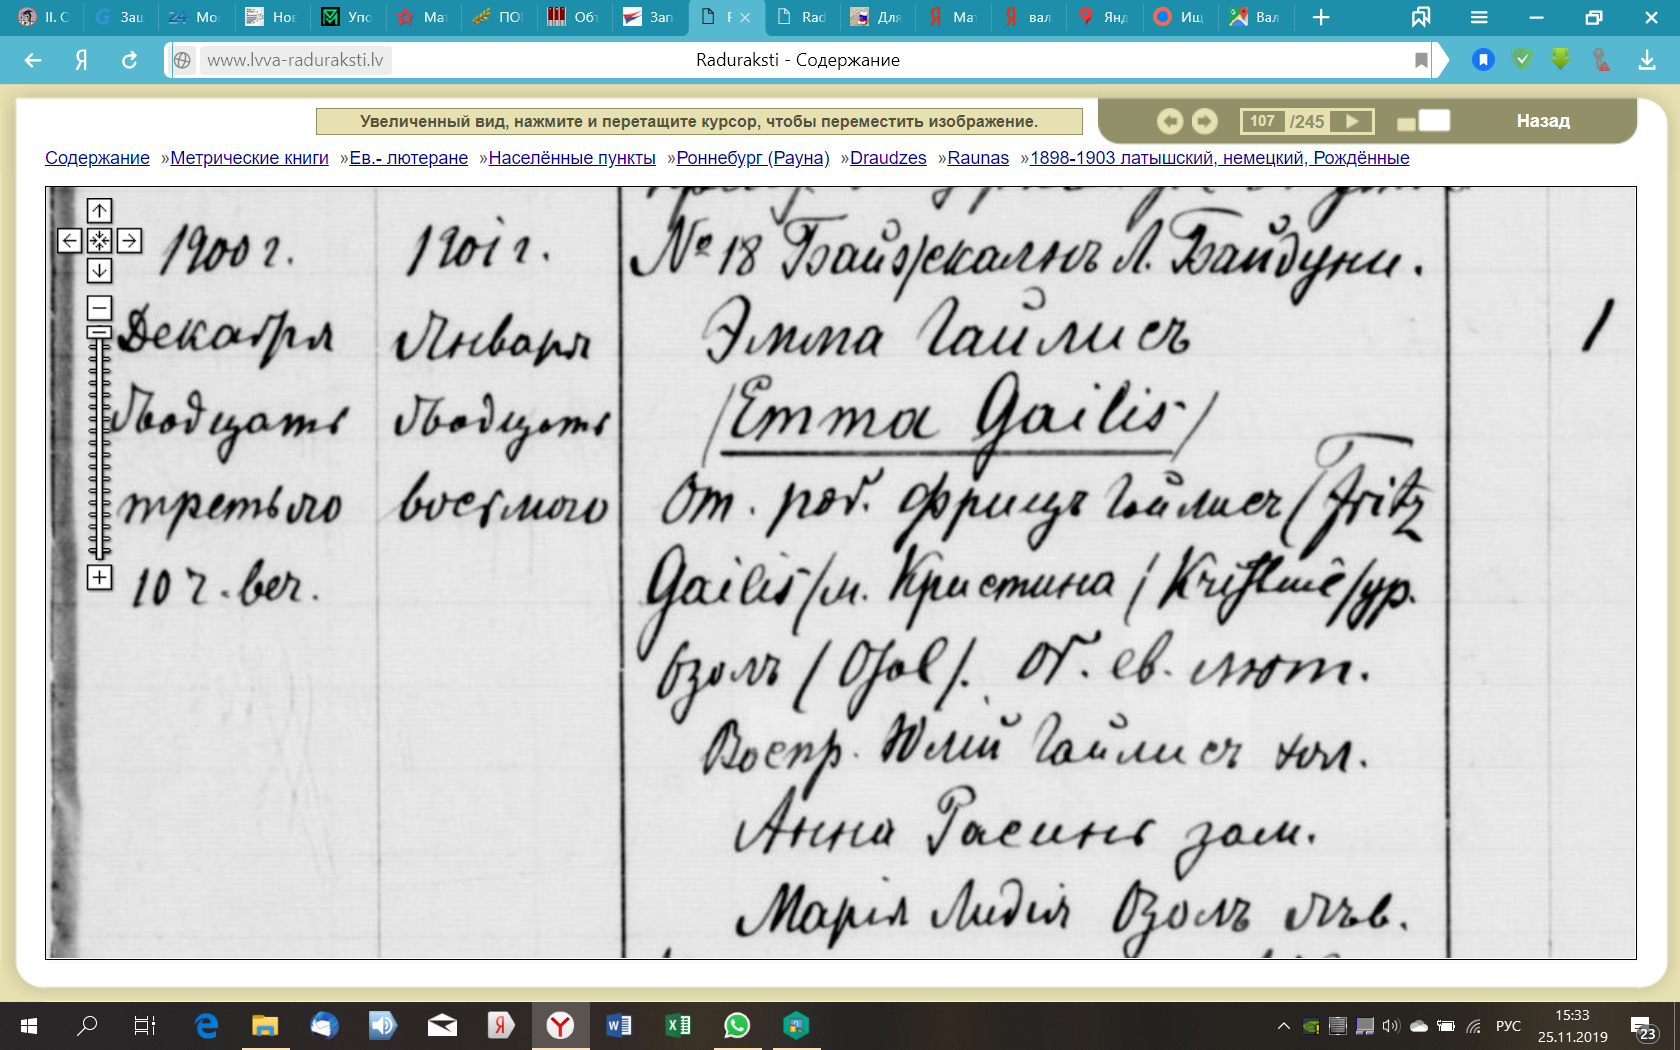 II. С
Заш
24 Мо
Нов
Упо
Мат
ПО
Объ
Зап
F
Rad
Для
Мат
вал
Янд
Ищ
Вал
www.lvva-raduraksti.lv
Raduraksti - Содержание
Увеличенный вид, нажмите и перетащите курсор, чтобы переместить изображение.
107 /245
Назад
Содержание »Метрические книги »Ев.- лютеране »Населённые пункты »Роннебург (Рауна) »Draudzes »Raunas »1898-1903 латышский, немецкий, Рождённые
1900 г. 1901 г. № 18 Байзккалнъ Л. Байдуни.
Декабря Января Эмма Гайлисъ 1
двадцать двадцать /Emma Gailis/
третьяго восьмого От. раб. Фрицъ Гайлисъ (Fritz
10 ч. веч. Gailis/ м. Кристина / Kristine/ ур.
Озолъ / Osol/. Об. ев. лют.
Воспр. Юлій Гайлисъ хол.
Анна Расинь зам.
Марія Лидія Озолъ дѣв.
РУС
15:33
25.11.2019
23